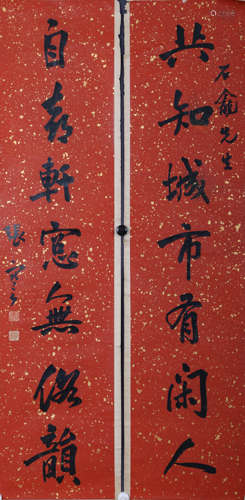 石龕先生
共知城市有闲人
自喜軒窓無俗韻
張謇